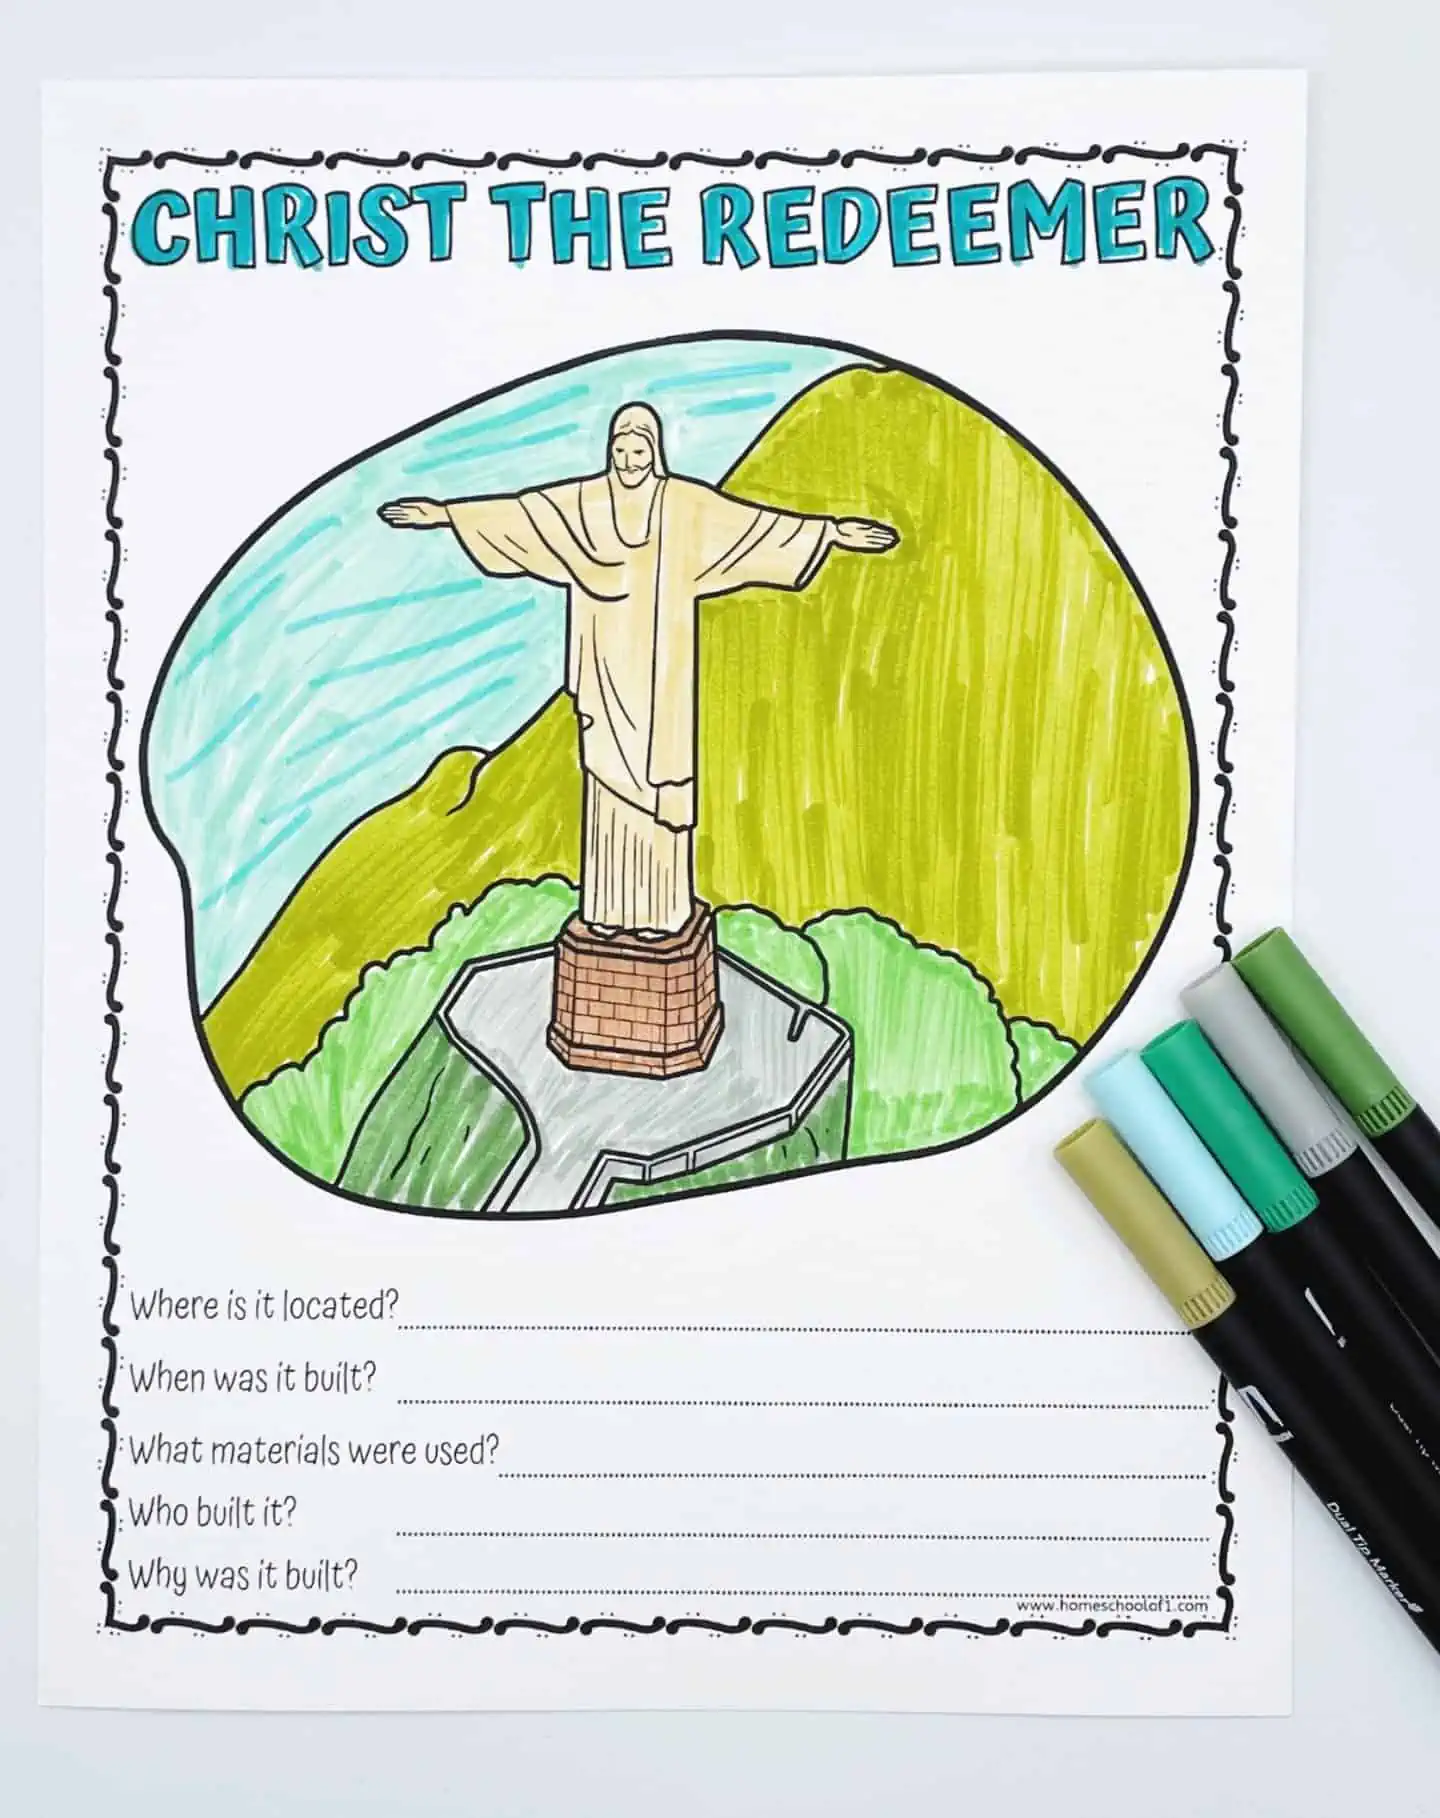 CHRIST THE REDEEMER
Where is it located?
When was it built?
What materials were used?
Who built it?
Why was it built?
www.homeschoolof1.com
Dual Tip Marker